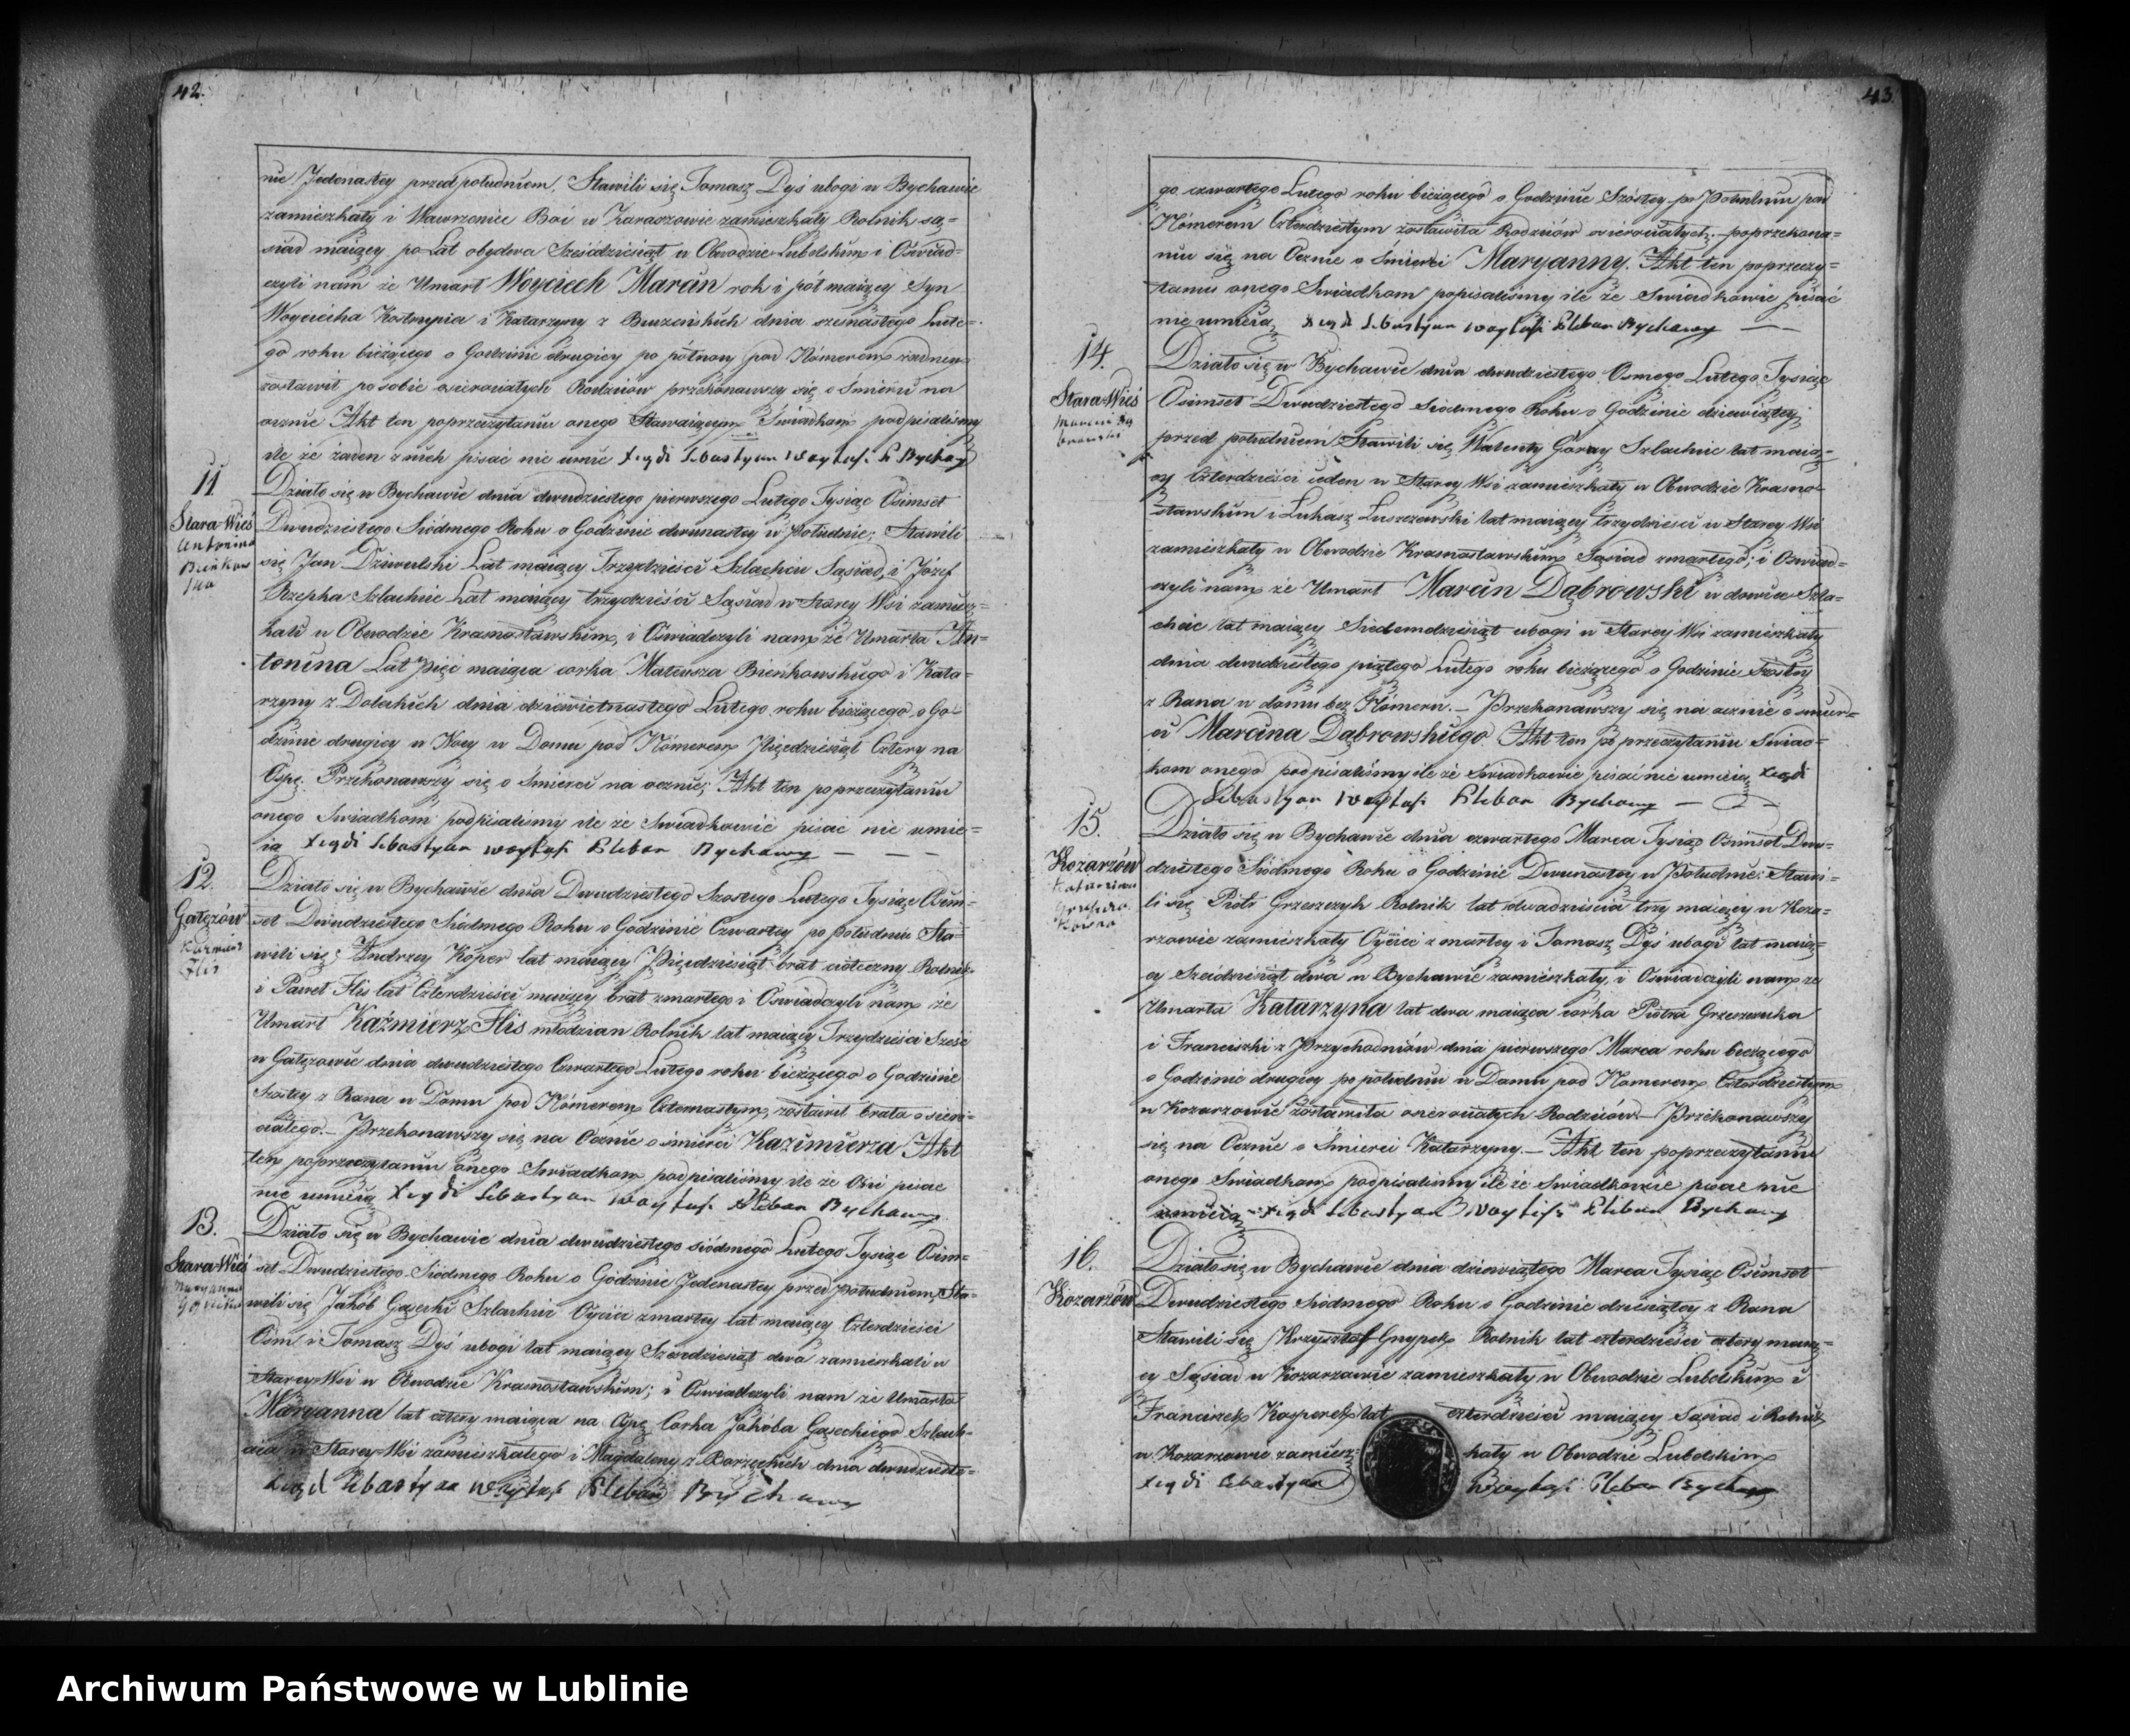 42.
nie Jedenastey przed południem. Stawili się Tomasz Dyś ubogi w Bychawie
zamieszkały i Wawrzeniec Boć w Zaraszowie zamieszkały Rolnik są=
siad maiący po Lat obydwa Sześćdziesiąt w Obwodzie Lubelskim i Oświad=
czyli nam że Umarł Woyciech Marcin rok i pół maiący Syn
Woyciecha i Katarzyny z dnia szesnastego Lute=
go roku bieżącego o Godzinie drugiey po północy pod Nomerem
zostawił po sobie osierociałych Rodziców przekonawszy się o Śmierci na
ocznie Akt ten po przeczytaniu onego Stawaiącym Świadkom podpisaliśmy
ile że żaden z nich pisać nie umie Xiądz Sebastyan Woytasi P. Bychawy
11
Stara-Wieś
Antonina
Bieńkow
ska
Działo się w Bychawie dnia dwudziestego pierwszego Lutego Tysiąc Ośmset
Dwudziestego Siódmego Roku o Godzinie dwunastey w Południe; Stawili
się Jan Dziwulski Lat maiący Trzydzieści Szlachcic Sąsiad, i Józef
Rzepka Szlachcic Lat maiący trzydzieści Sąsiad w Starey Wsi zamiesz=
kali w Obwodzie Krasnostawskim, i Oświadczyli nam że Umarła An=
tonina Lat pięć maiąca corka Mateusza Bieńkowskiego i Kata=
rzyny z dnia dziewietnastego Lutego roku bieżącego o Go=
dzinie drugiey w Nocy w Domu pod Nomerem Pięćdziesiąt Cztery na
Ospę. Przekonawszy się o Śmierci na ocznie; Akt ten po przeczytaniu
onego Swiadkom podpisaliśmy ile że Swiadkowie pisać nie umie=
ią Xiądz Sebastyan Woytasi Pleban Bychawy
12.
Gałęzów
Kazmirz
Flis
Działo się w Bychawie dnia Dwudziestego Szostego Lutego Tysiąc Ośm=
set Dwudziestego Siódmego Roku o Godzinie Czwartey po południu Sta=
wili się; Andrzey Koper lat maiący Pięćdziesiąt brat cioteczny Rolnik
i Paweł Flis lat Czterdzieści maiący brat zmarłego i Oświadczyli nam że
Umarł Kaźmierz Flis młodzian Rolnik lat maiący Trzydzieści Sześć
w Gałęzowie dnia dwudziestego Czwartego Lutego roku bieżącego o Godzinie
Szostey z Rana w Domu pod Nómerem Czternastym, zostawił brata osiero=
ciałego.— Przekonawszy się na Ocznie o śmierci Kazimierza Akt
ten po przeczytaniu onego Swiadkom podpisaliśmy ile że Oni pisać
nie umieią Xiądz Sebastyan Woytasi Pleban Bychawy
13.
Stara-Wieś
Maryanna
Gąsecka
Działo się w Bychawie dnia dwudziestego siódmego Lutego Tysiąc Ośm=
set Dwudziestego Siódmego Roku o Godzinie Jedenastey przed południem, Sta=
wili się Jakób Gąsecki Szlachcic Oyciec zmarłey lat maiący Czterdzieści
Ośm i Tomasz Dyś ubogi lat maiący Sześćdziesiąt dwa zamieszkali w
Starey-Wsi w Obwodzie Krasnostawskim; i Oświadczyli nam że Umarła
Maryanna lat cztery maiąca na Ospę Corka Jakóba Gąseckiego Szlach=
cica w Starey-Wsi zamieszkałego i Magdaleny z Borzęckich dnia dwudzieste=
Xiądz Sebastyan Woytasi Pleban Bychawy
43.
go czwartego Lutego roku bieżącego o Godzinie Szóstey po Południu pod
Nómerem Czterdziestym zostawiła Rodziców osierociałych.— po przekona=
niu się na Ocznie o Śmierci Maryanny. Akt ten po przeczy=
taniu onego Swiadkom popisaliśmy ile że Swiadkowie pisać
nie umieią, Xiądz Sebastyan Woytasi Pleban Bychawy
14.
Stara-Wieś
Marcin Dą
browski
Działo się w Bychawie dnia dwudziestego Osmego Lutego Tysiąc
Ośmset Dwudziestego Siódmego Roku o Godzinie dziewiątey
przed południem Stawili się Walenty Goray Szlachcic lat maią=
cy Czterdzieści ieden w Starey Wsi zamieszkały w Obwodzie Krasno=
stawskim i Łukasz Łuszczewski lat maiący trzydzieści w Starey Wsi
zamieszkały w Obwodzie Krasnostawskim Sąsiad zmarłego; i Oswiad=
czyli nam że Umarł Marcin Dąbrowski wdowiec Szla=
chcic lat maiący Siedemdziesiąt ubogi w Starey Wsi zamieszkały
dnia dwudziestego piątego Lutego roku bieżącego o Godzinie Szostey
z Rana w domu bez Nómeru.— Przekonawszy się na ocznie o smier=
ci Marcina Dąbrowskiego. Akt ten po przeczytaniu Swiad=
kom onego podpisaliśmy ile że Swiadkowie pisać nie umieią, Xiądz
Sebastyan Woytasi Pleban Bychawy
15.
Kozarzów
Katarzina
Działo się w Bychawie dnia czwartego Marca Tysiąc Ośmset Dwu=
dziestego Siódmego Roku o Godzinie Dwunastey w Południe: Stawi=
li się Piotr Grzeszczyk Rolnik lat dwadzieścia trzy maiący w Koza=
rzowie zamieszkały Oyciec zmarłey i Tomasz Dyś ubogi lat maią=
cy Sześćdziesiąt dwa w Bychawie zamieszkały, i Oświadczyli nam że
Umarła Katarzyna lat dwa maiąca corka Piotra Grzeszczyka
i Franciszki z Przychodniów dnia pierwszego Marca roku bieżącego
o Godzinie drugiey po południu w Domu pod Nomerem Czterdziestym
w Kozarzowie zostawiła osierociałych Rodziców.— Przekonawszy
się na Ocznie o Śmierci Katarzyny.— Akt ten po przeczytaniu
onego Swiadkom podpisaliśmy ile że Świadkowie pisać nie
umieią.— Xiądz Sebastyan Woytasi Pleban Bychawy
16.
Kozarzów
Działo się w Bychawie dnia dziewiątego Marca Tysiąc Ośmset
Dwudziestego Siódmego Roku o Godzinie dziesiątey z Rana
Stawili się Krzysztof Gnypek Rolnik lat czterdzieści cztery maią=
cy Sąsiad w Kozarzowie zamieszkały w Obwodzie Lubelskim i
Franciszek Kasperek lat czterdzieści maiący Sąsiad i Rolnik
w Kozarzowie zamiesz= kały w Obwodzie Lubelskim
Xiądz Sebastyan Woytasi Pleban Bychawy
Archiwum Państwowe w Lublinie